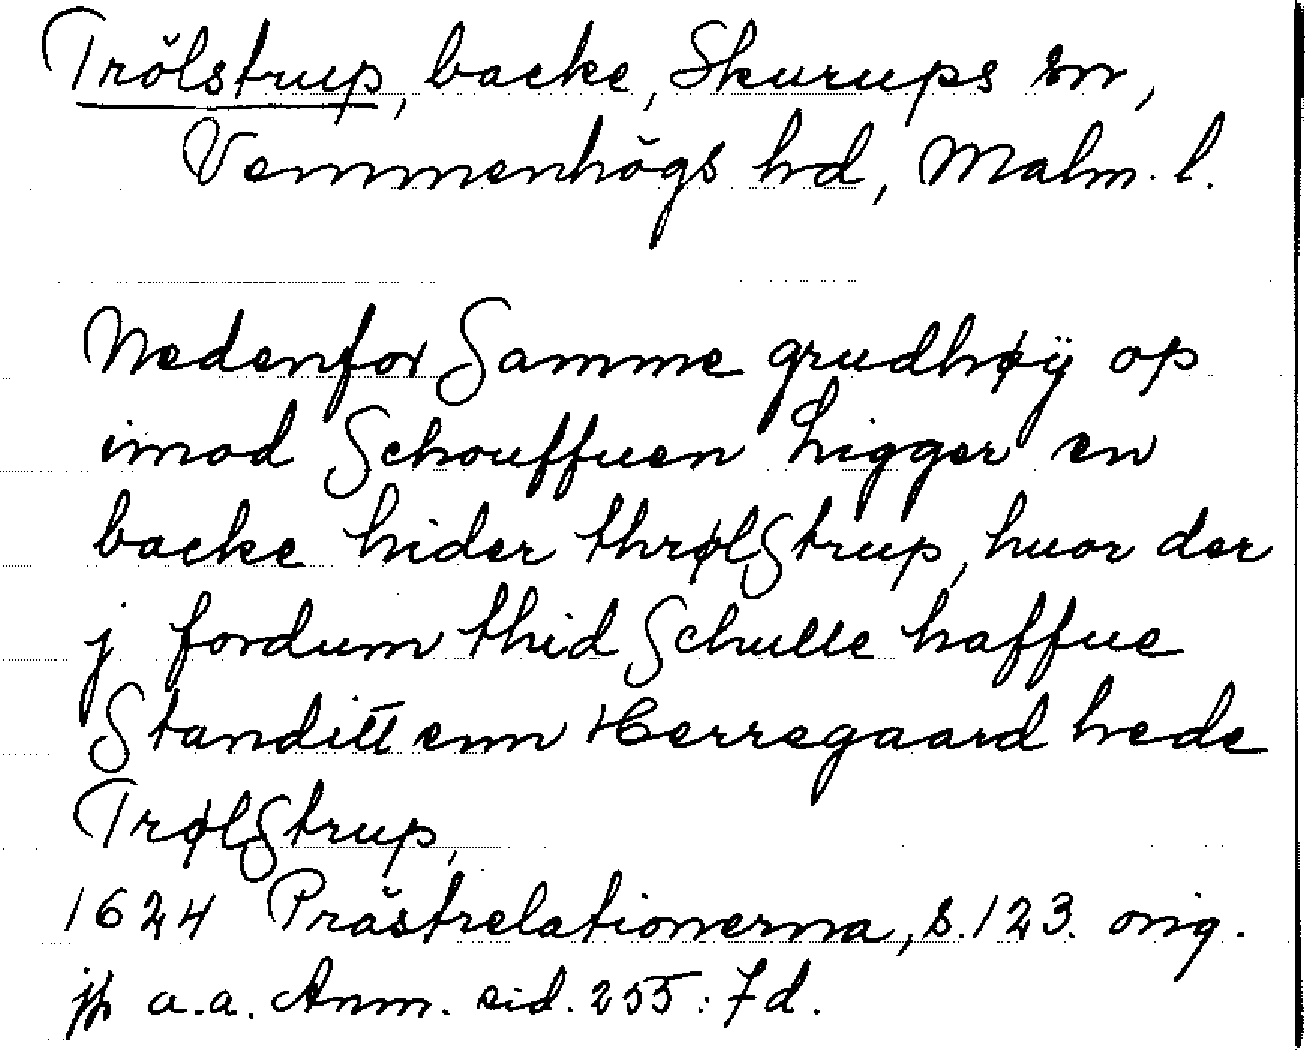 Trölstrup, backe, Skurups sn,
Vemmenhögs hd, Malm. l.
Nedenfor Samme grudhøÿ op
imod Schouffuen Ligger en
backe hider thrølStrup, huor der
j fordum thid Schulle haffue
Standitt enn Herregaard hede
TrølStrup,
1624 Prästrelationerna, s. 123. orig.
jfr a.a. Anm. sid. 255: 7d.